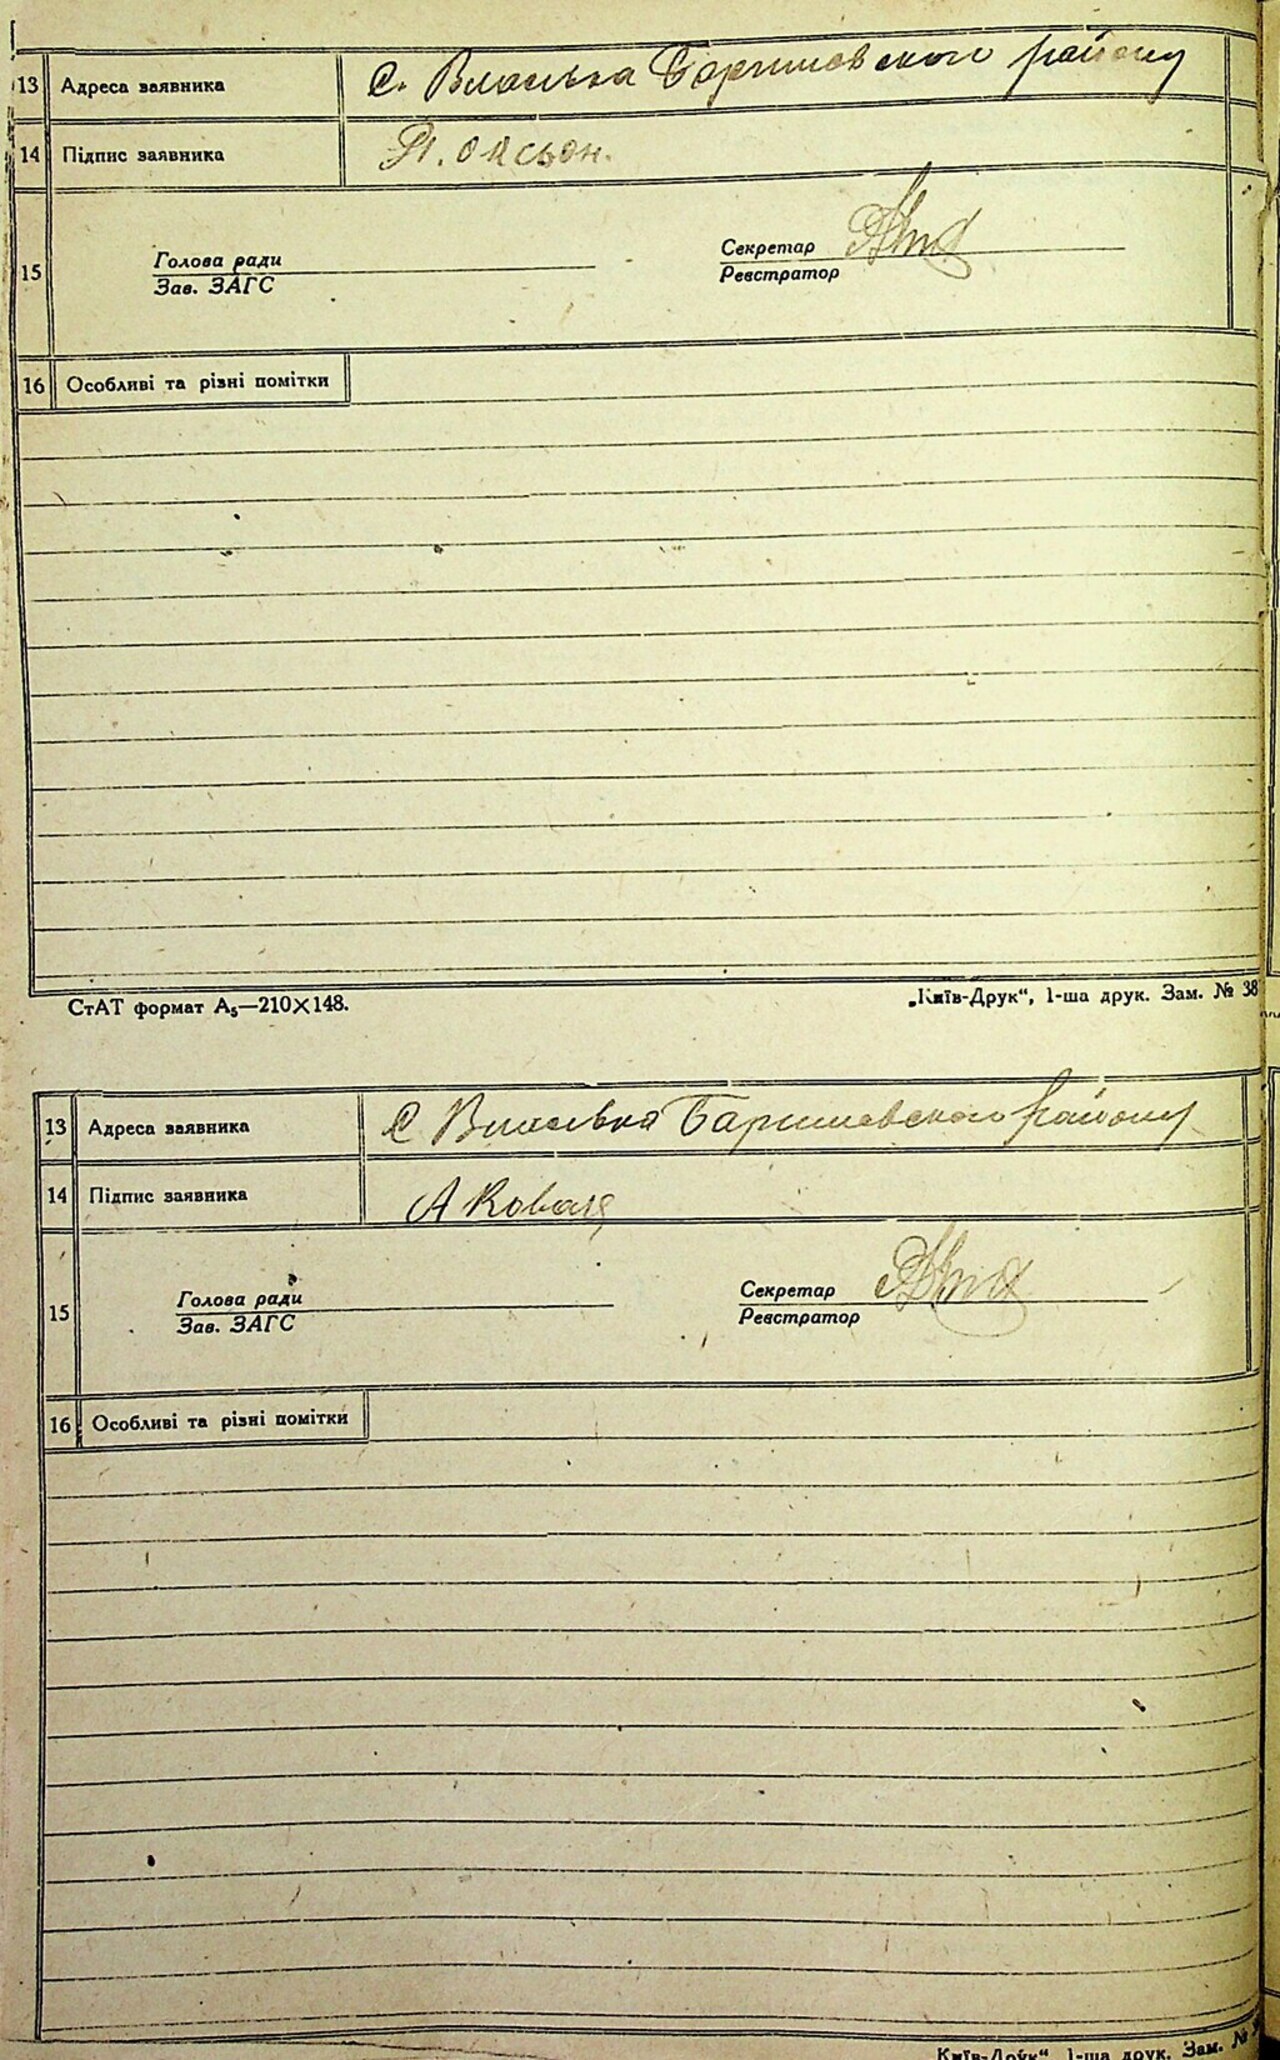 13 Адреса заявника С. Власівка Баришевского району
14 Підпис заявника
15 Голова ради Секретар
Зав. ЗАГС Реєстратор
16 Особливі та різні помітки
СтАТ формат А₅—210×148. „Київ-Друк“, 1-ша друк. Зам. № 38
13 Адреса заявника С Власівка Баришевского району
14 Підпис заявника А Коваль
15 Голова ради Секретар
Зав. ЗАГС Реєстратор
16 Особливі та різні помітки
Київ-Друк“ 1-ша друк. Зам. №